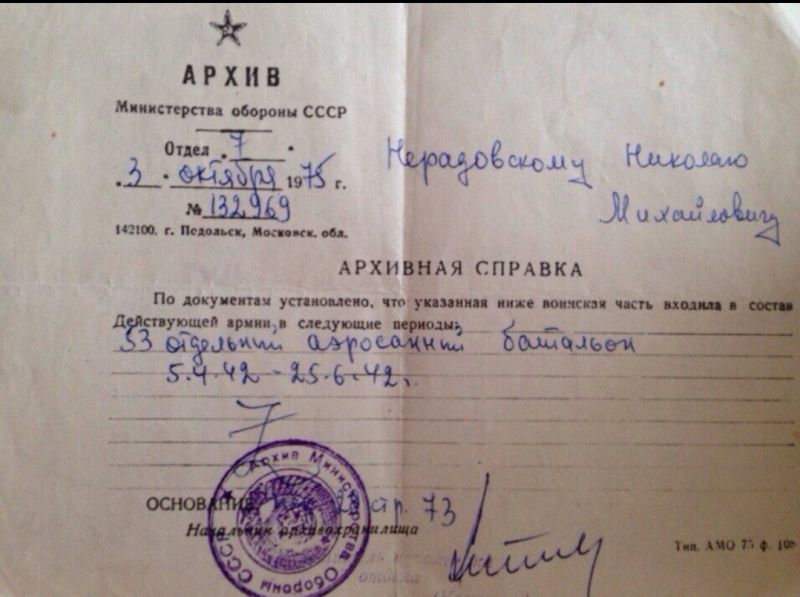 АРХИВ
Министерства обороны СССР
Отдел 7
„3“ октября 1975 г.
№ 132969
142100. г. Подольск, Московск. обл.
Нерадовскому Николаю
Михайловичу
АРХИВНАЯ СПРАВКА
По документам установлено, что указанная ниже воинская часть входила в состав
Действующей армии, в следующие периоды:
53 отдельный аэросанный батальон
5.4.42 - 25.6.42г.
ОСНОВАНИЕ стр. 73
Начальник архивохранилища
Архив Министерства Обороны СССР
отдела
Тип. АМО 75 ф. 108